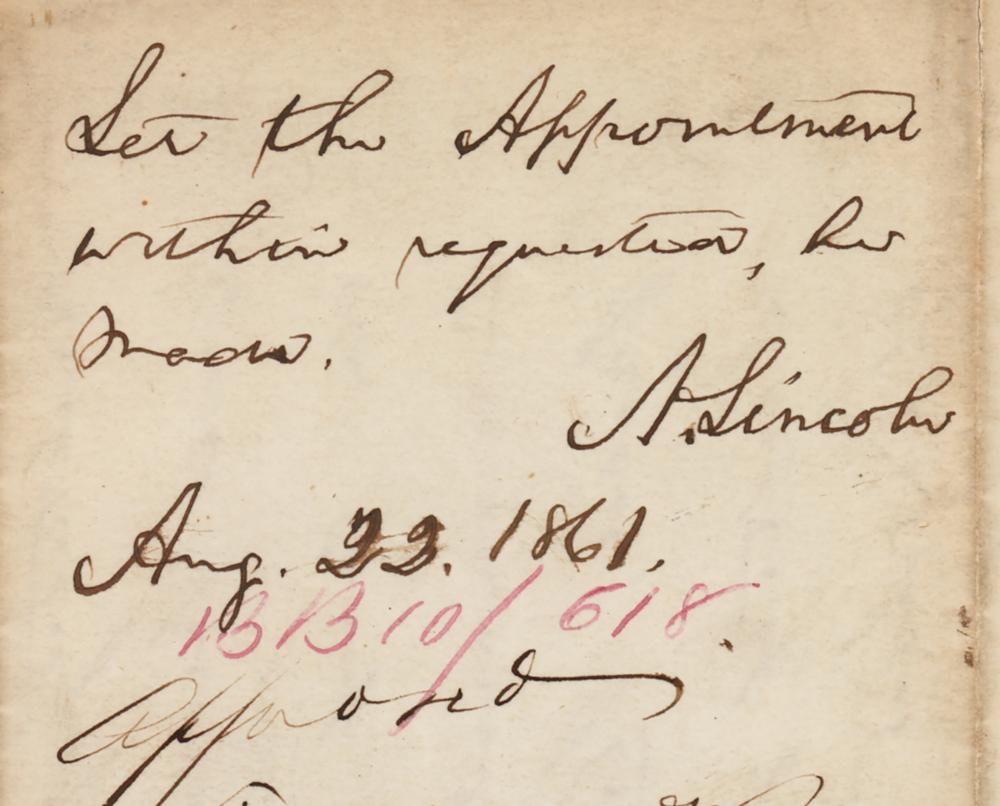 Let the Appointment
within requested, be
made.
A. Lincoln
Aug. 22. 1861.
BB 10/618
Approved